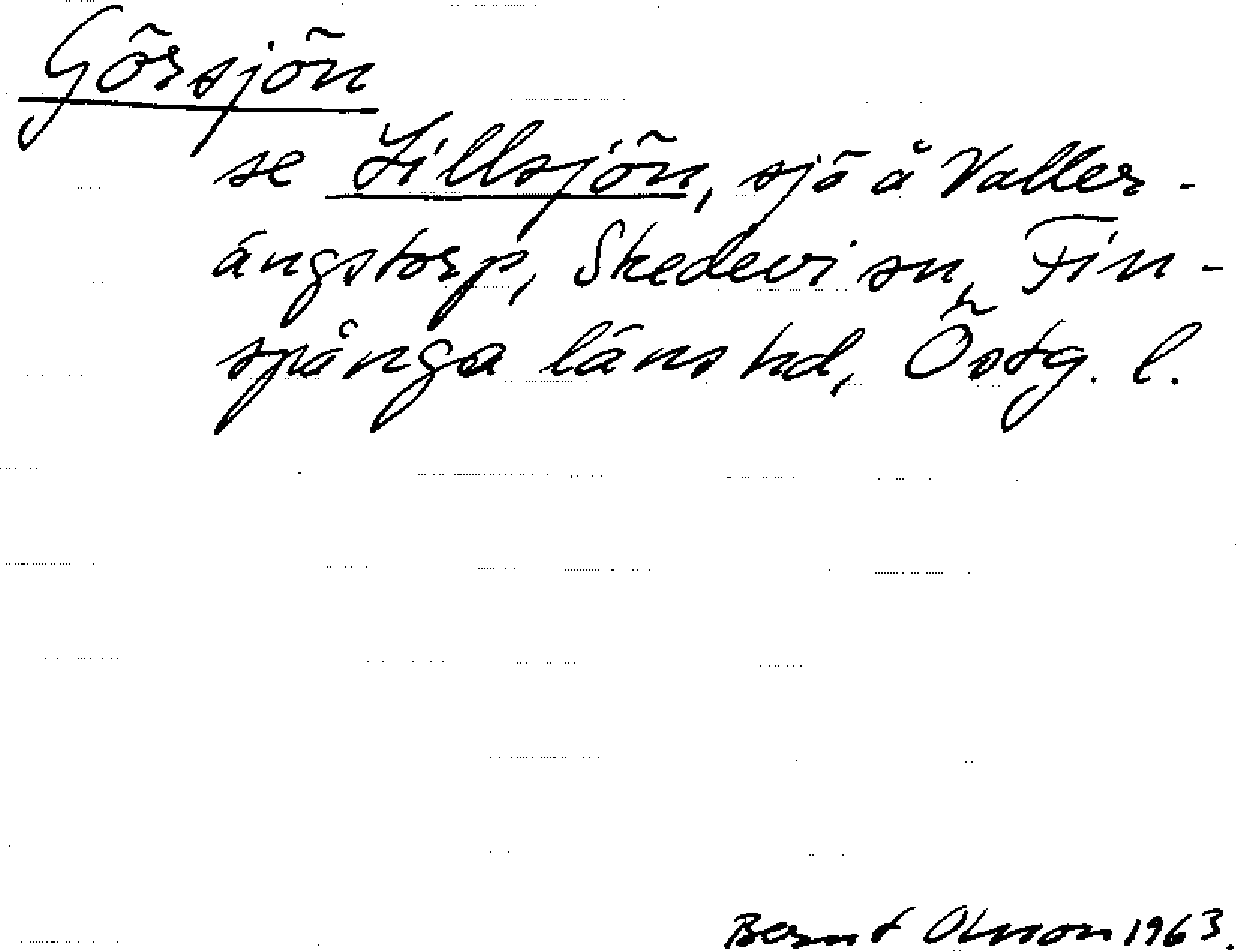 Görsjön
se Lillsjön, sjö å Valler-
ängstorp, Skedevi sn, Fin-
spånga läns hd, Östg. l.
Bernt Olsson 1963.